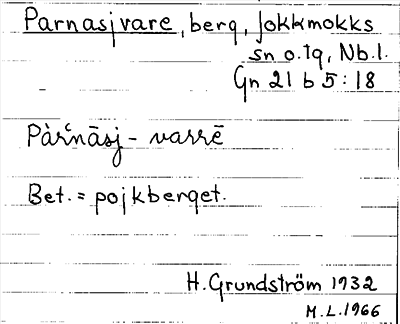 Parnasjvare, berg, Jokkmokks
sn o. tq, Nb.l.
Gn 21 b 5:18
Pàŕ̄nāsj - varrē
Bet. = pojkberget.
H. Grundström 1932
M.L. 1966